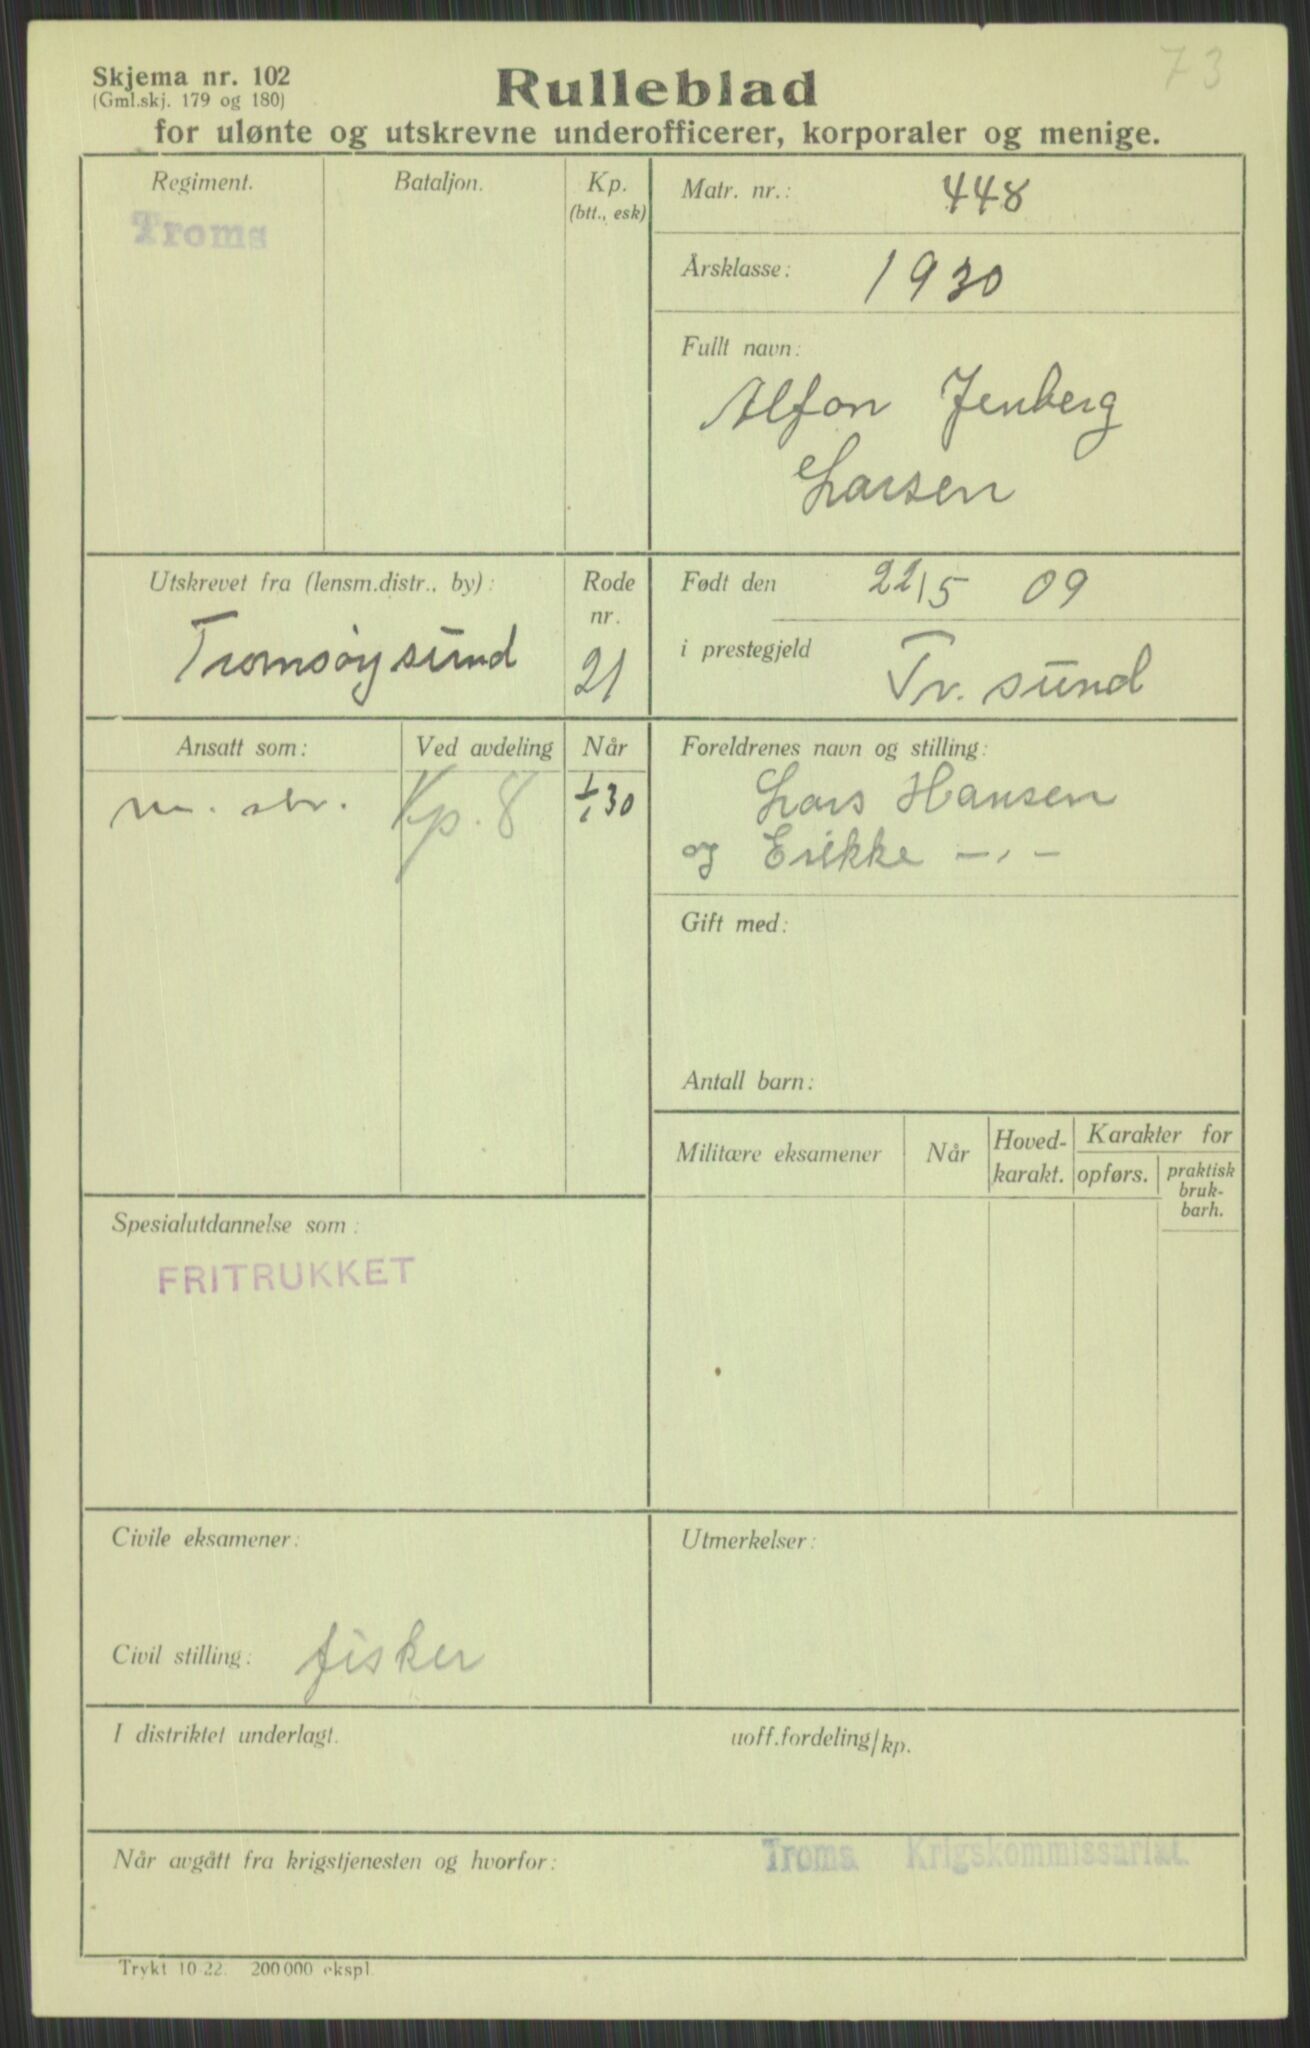 73
Skjema nr. 102
(Gml.skj. 179 og 180)
Rulleblad
for ulønte og utskrevne underofficerer, korporaler og menige.
Regiment.
Troms
Bataljon.
Kp.
(btt., esk)
Matr. nr.: 448
Årsklasse: 1930
Fullt navn:
Alfon Jenberg
Larsen
Utskrevet fra (lensm.distr., by):
Tromsøysund
Rode
nr.
21
Født den 22/5 09
i prestegjeld Tr. sund
Ansatt som:
Ved avdeling
Når
Kp. 8
1/1 30
Foreldrenes navn og stilling:
Lars Hansen
og Erikke —„—
Gift med:
Antall barn:
Militære eksamener
Når
Hoved-
karakt.
Karakter for
opførs.
praktisk
bruk-
barh.
Spesialutdannelse som:
FRITRUKKET
Civile eksamener:
Civil stilling: fisker
Utmerkelser:
I distriktet underlagt.
uoff.fordeling/kp.
Når avgått fra krigstjenesten og hvorfor:
Troms Krigskommissariat.
Trykt 10-22. 200 000 ekspl.